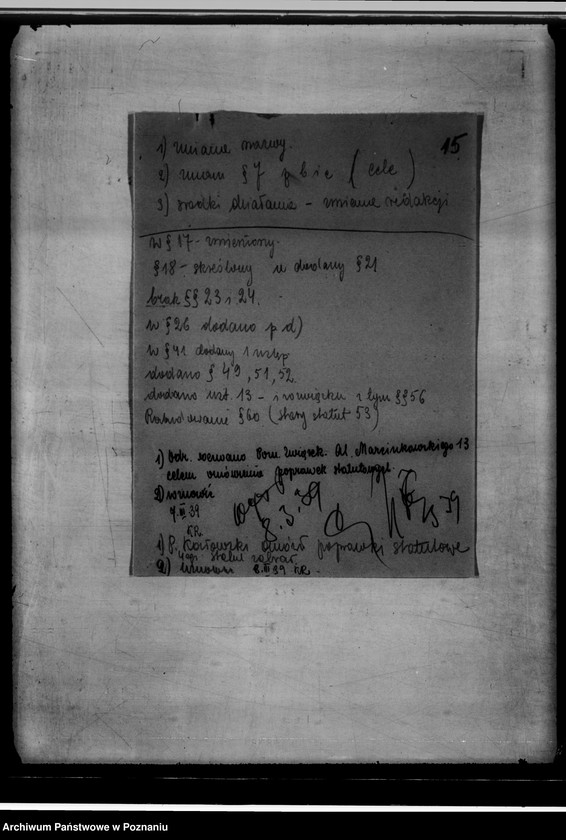 15
1) zmiana nazwy.
2) zmian § 7 p b i c ( cele )
3) środki działania – zmiana redakcji
w § 17 – zmieniony.
§ 18 – skreślony a dodany § 21
brak §§ 23 i 24.
w § 26 dodano p d)
w § 41 dodany 1 ustęp
dodano § 49, 51, 52.
dodano rozt. 13 – z tym §§ 56
§ 60 (stary statut 53)
1) Odr. wezwano Pom. Związek. Al. Marcinkowskiego 13
celem omówienia poprawek statutowych.
2) wznowić
7.III 39
KR.
8.3.39
39
1) P. omówił poprawki statutowe
statut zabrał
2) 8.III 39 KR.
Archiwum Państwowe w Poznaniu